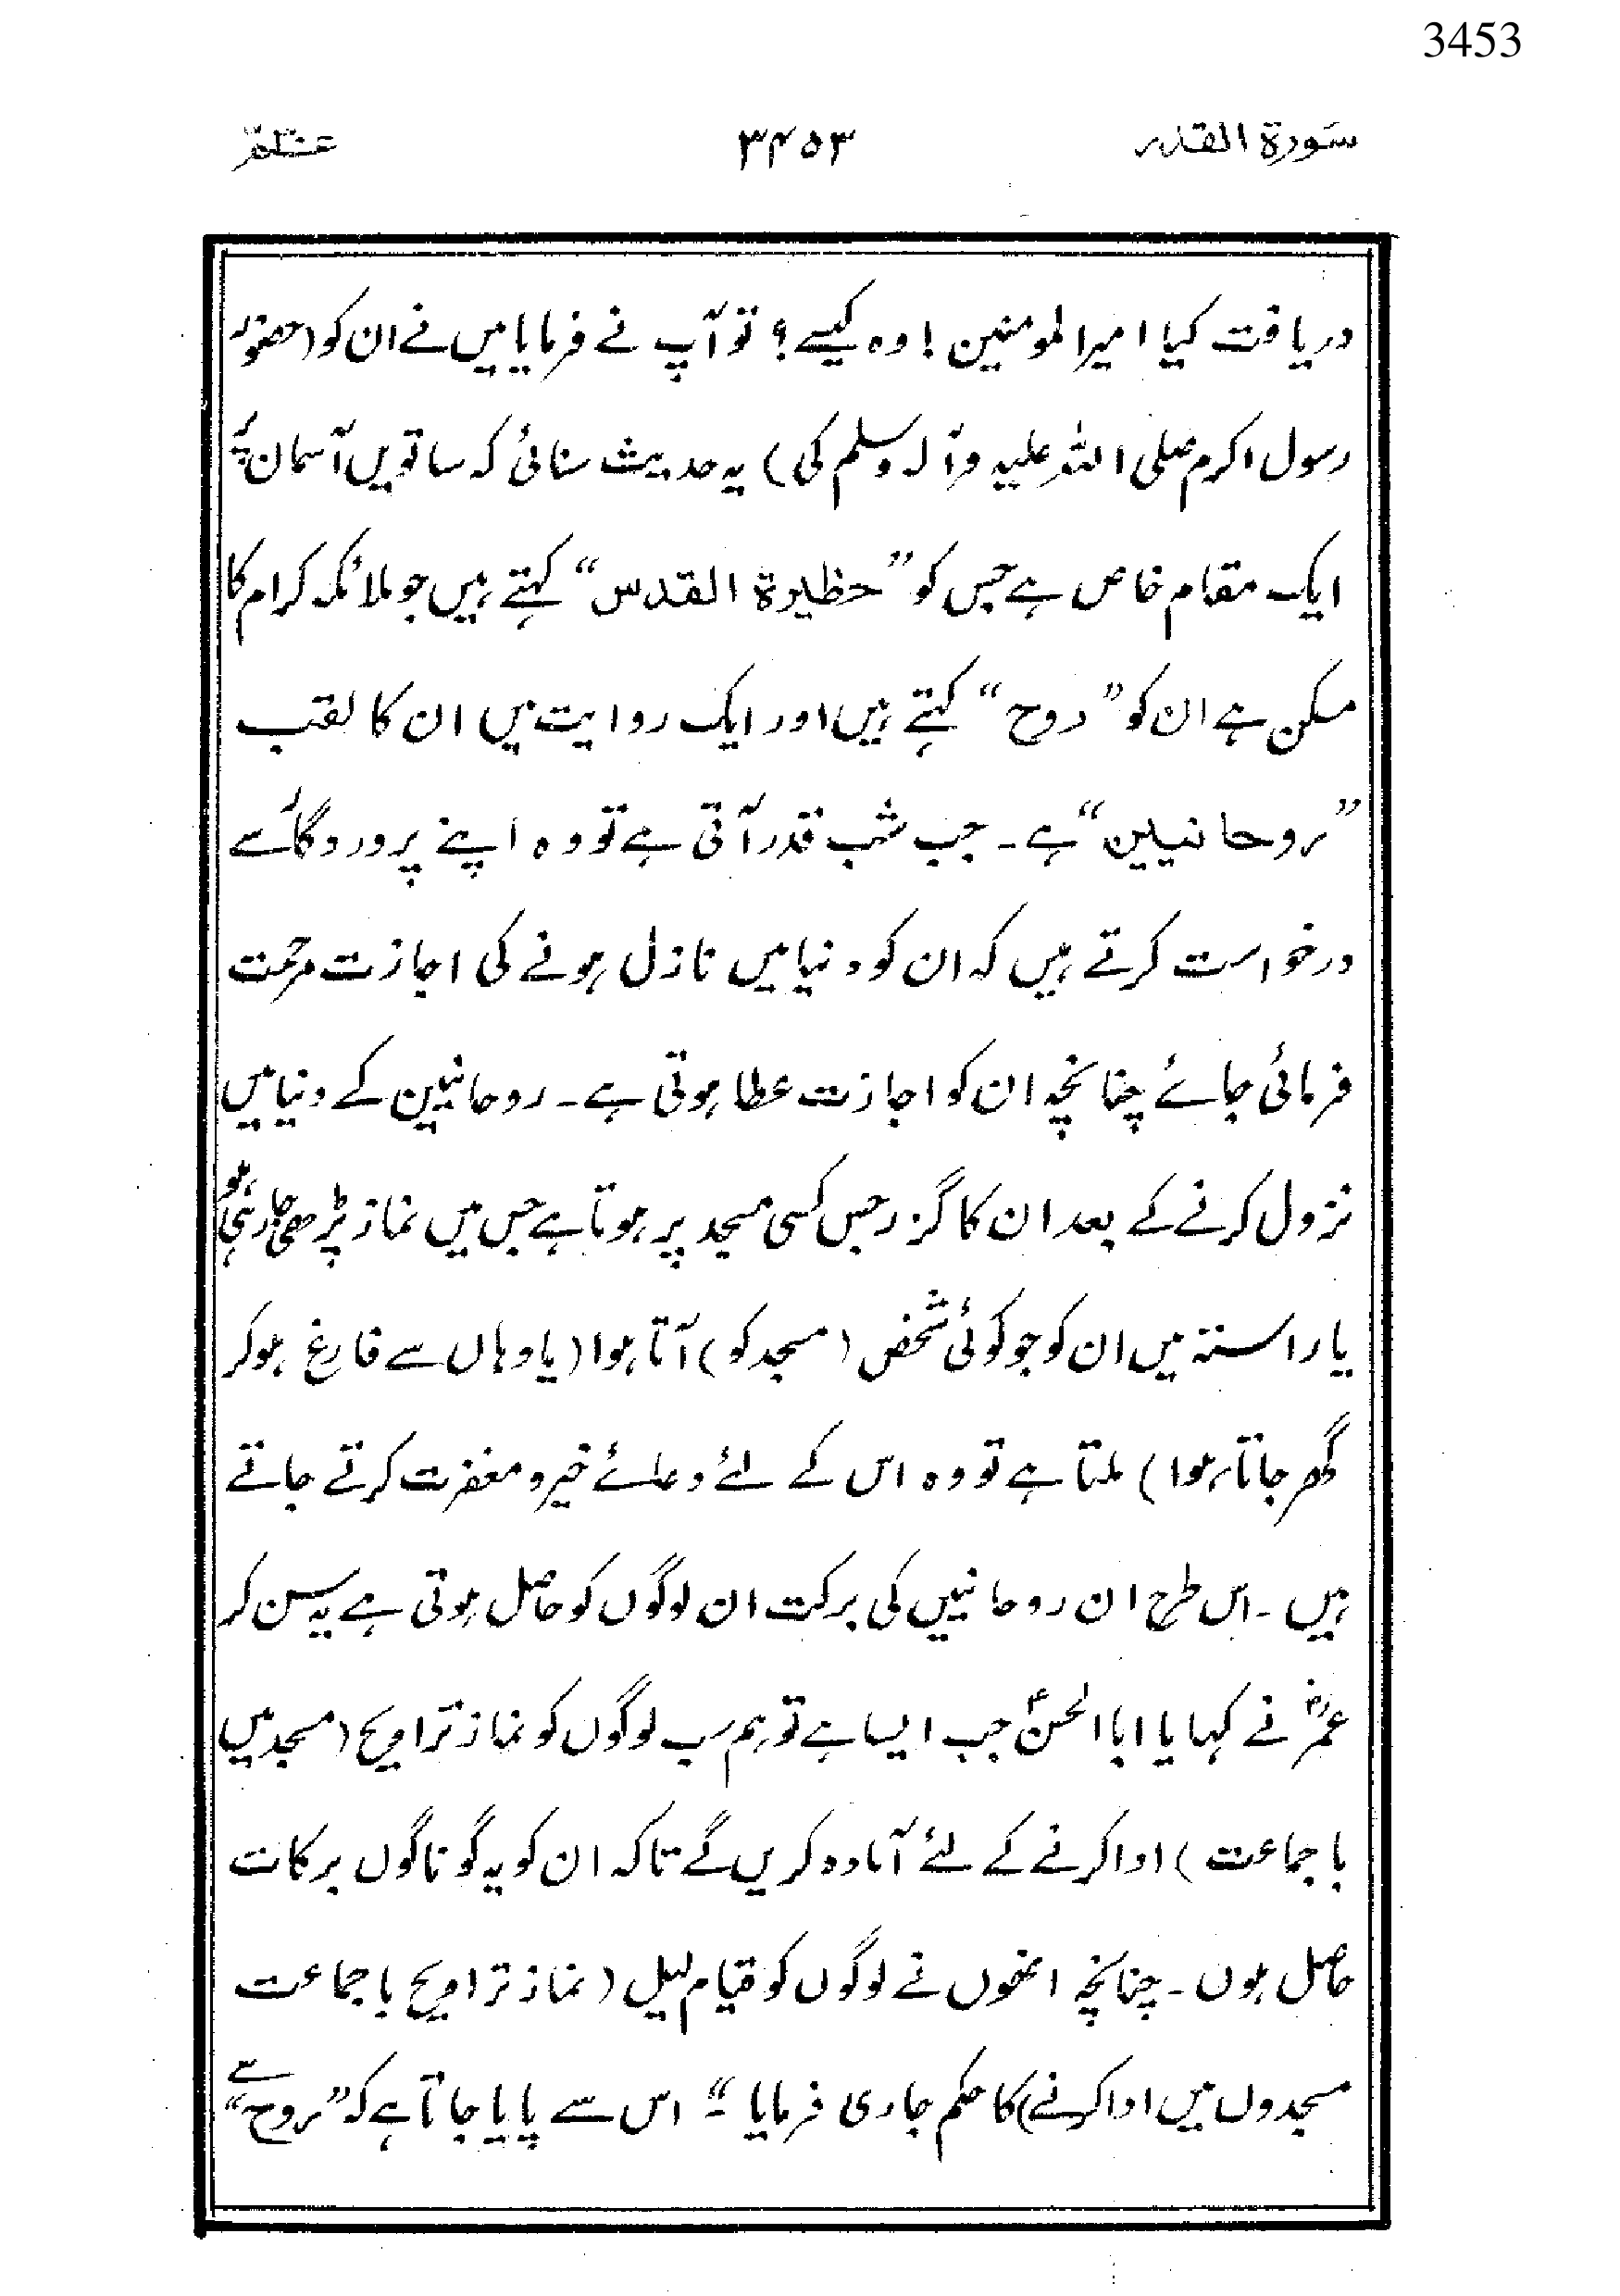 3453
سورة القدر ۳۴۵۳ عمّ
دریافت کیا امیر المومنین! وہ کیسے؟ تو آپ نے فرمایا میں نے ان کو (حضور
رسول اکرم صلی اللہ علیہ وآلہ وسلم کی) یہ حدیث سنائی کہ ساتویں آسمان پر
ایک مقام خاص ہے جس کو ”حظیرة القدس“ کہتے ہیں جو ملائکہ کرام کا
مسکن ہے ان کو ”روح“ کہتے ہیں اور ایک روایت میں ان کا لقب
”روحانیین“ ہے۔ جب شب قدر آتی ہے تو وہ اپنے پروردگار سے
درخواست کرتے ہیں کہ ان کو دنیا میں نازل ہونے کی اجازت مرحمت
فرمائی جائے چنانچہ ان کو اجازت عطا ہوتی ہے۔ روحانیین کے دنیا میں
نزول کرنے کے بعد ان کا گزر جس کسی مسجد پر ہوتا ہے جس میں نماز پڑھی جا رہی ہو
یا راستہ میں ان کو جو کوئی شخص (مسجد کو) آتا ہوا (یا وہاں سے فارغ ہو کر
گھر جاتا ہوا) ملتا ہے تو وہ اس کے لئے دعائے خیر و مغفرت کرتے جاتے
ہیں۔ اس طرح ان روحانیین کی برکت ان لوگوں کو حاصل ہوتی ہے یہ سن کر
عمرؓ نے کہا یا ابا الحسنؑ جب ایسا ہے تو ہم سب لوگوں کو نماز تراویح (مسجد میں
با جماعت) ادا کرنے کے لئے آمادہ کریں گے تاکہ ان کو یہ گوناگوں برکات
حاصل ہوں۔ چنانچہ انھوں نے لوگوں کو قیام لیل (نماز تراویح با جماعت
مسجدوں میں ادا کرنے) کا حکم جاری فرمایا۔“ اس سے پایا جاتا ہے کہ ”روح“ سے